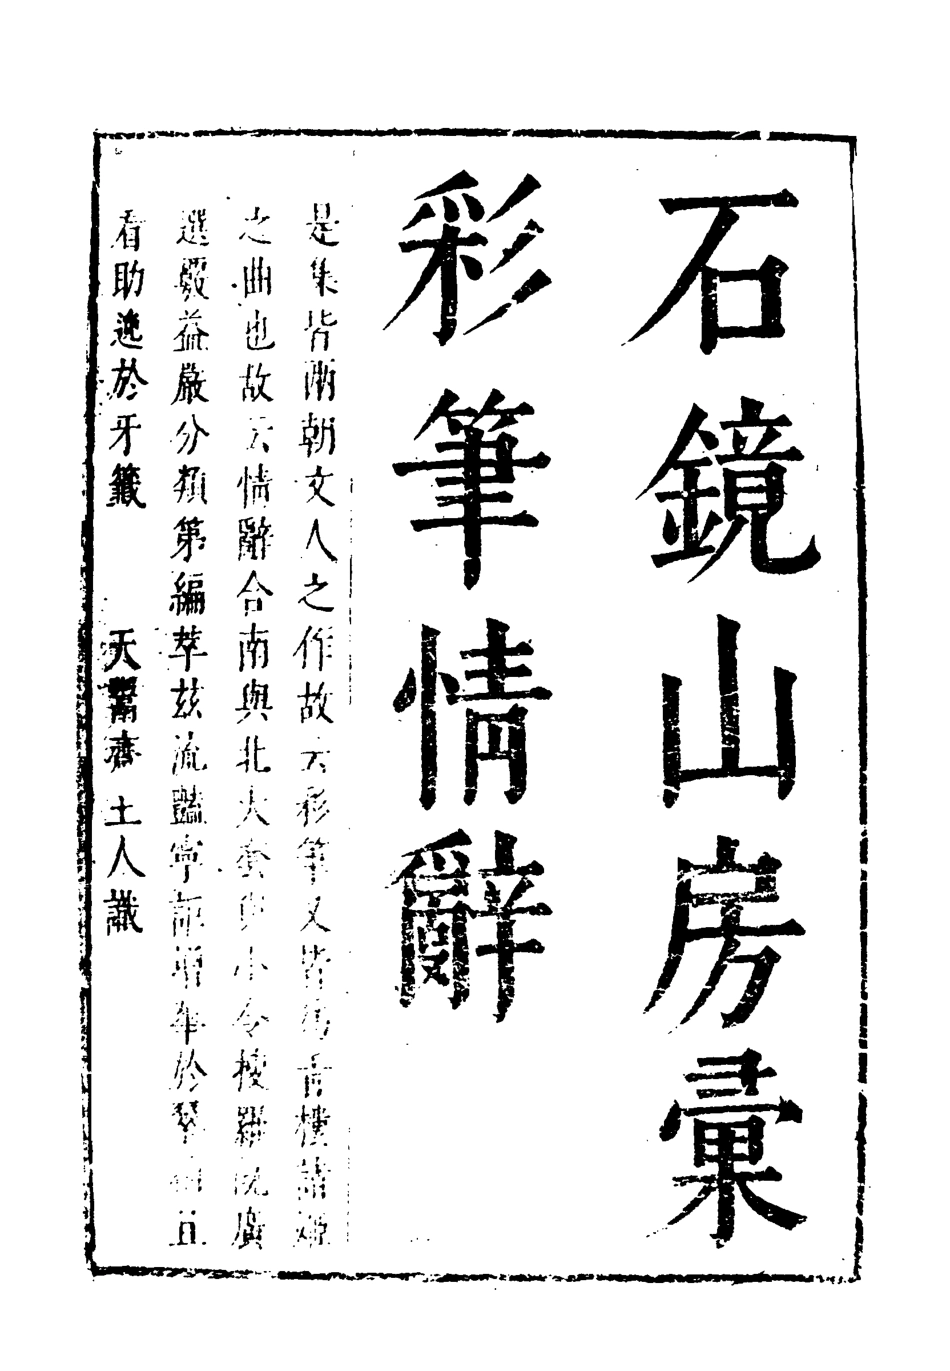 石鏡山房彙
彩筆情辭
是集皆兩朝文人之作故云彩筆又皆爲青樓諸姬
之曲也故云情辭合南與北大套與小令搜羅既廣
選數益嚴分類第編萃玆流豔寧詎增華於琴 且
看助逸於牙籤　天 齋 土人識